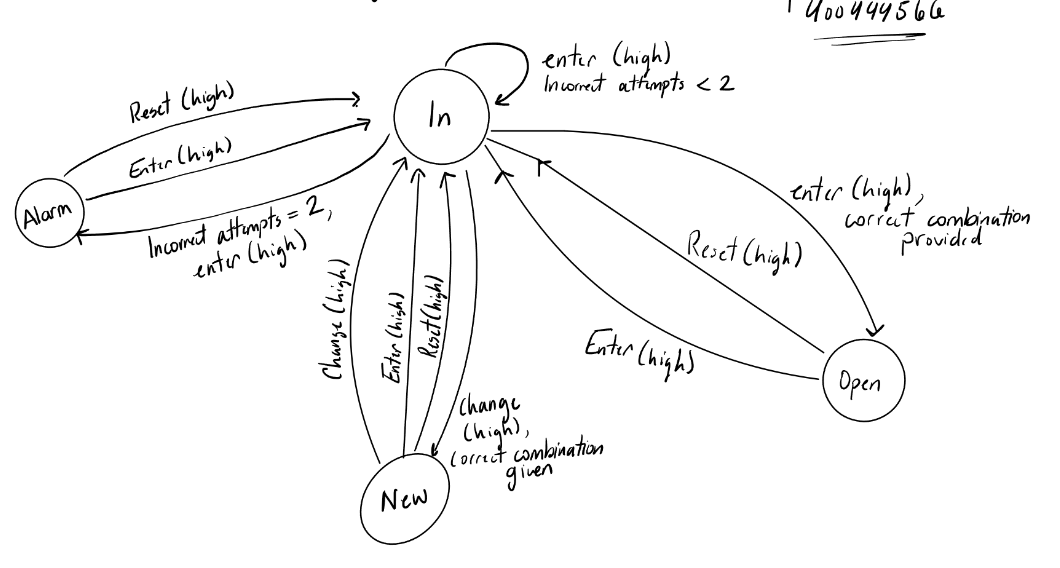 400444566
enter (high)
Incorrect attempts < 2
In
Reset (high)
Enter (high)
Alarm
Incorrect attempts = 2,
enter (high)
enter (high),
correct combination
provided
Reset (high)
Enter (high)
Change (high)
Enter (high)
Reset (high)
Open
change
(high),
correct combination
given
New